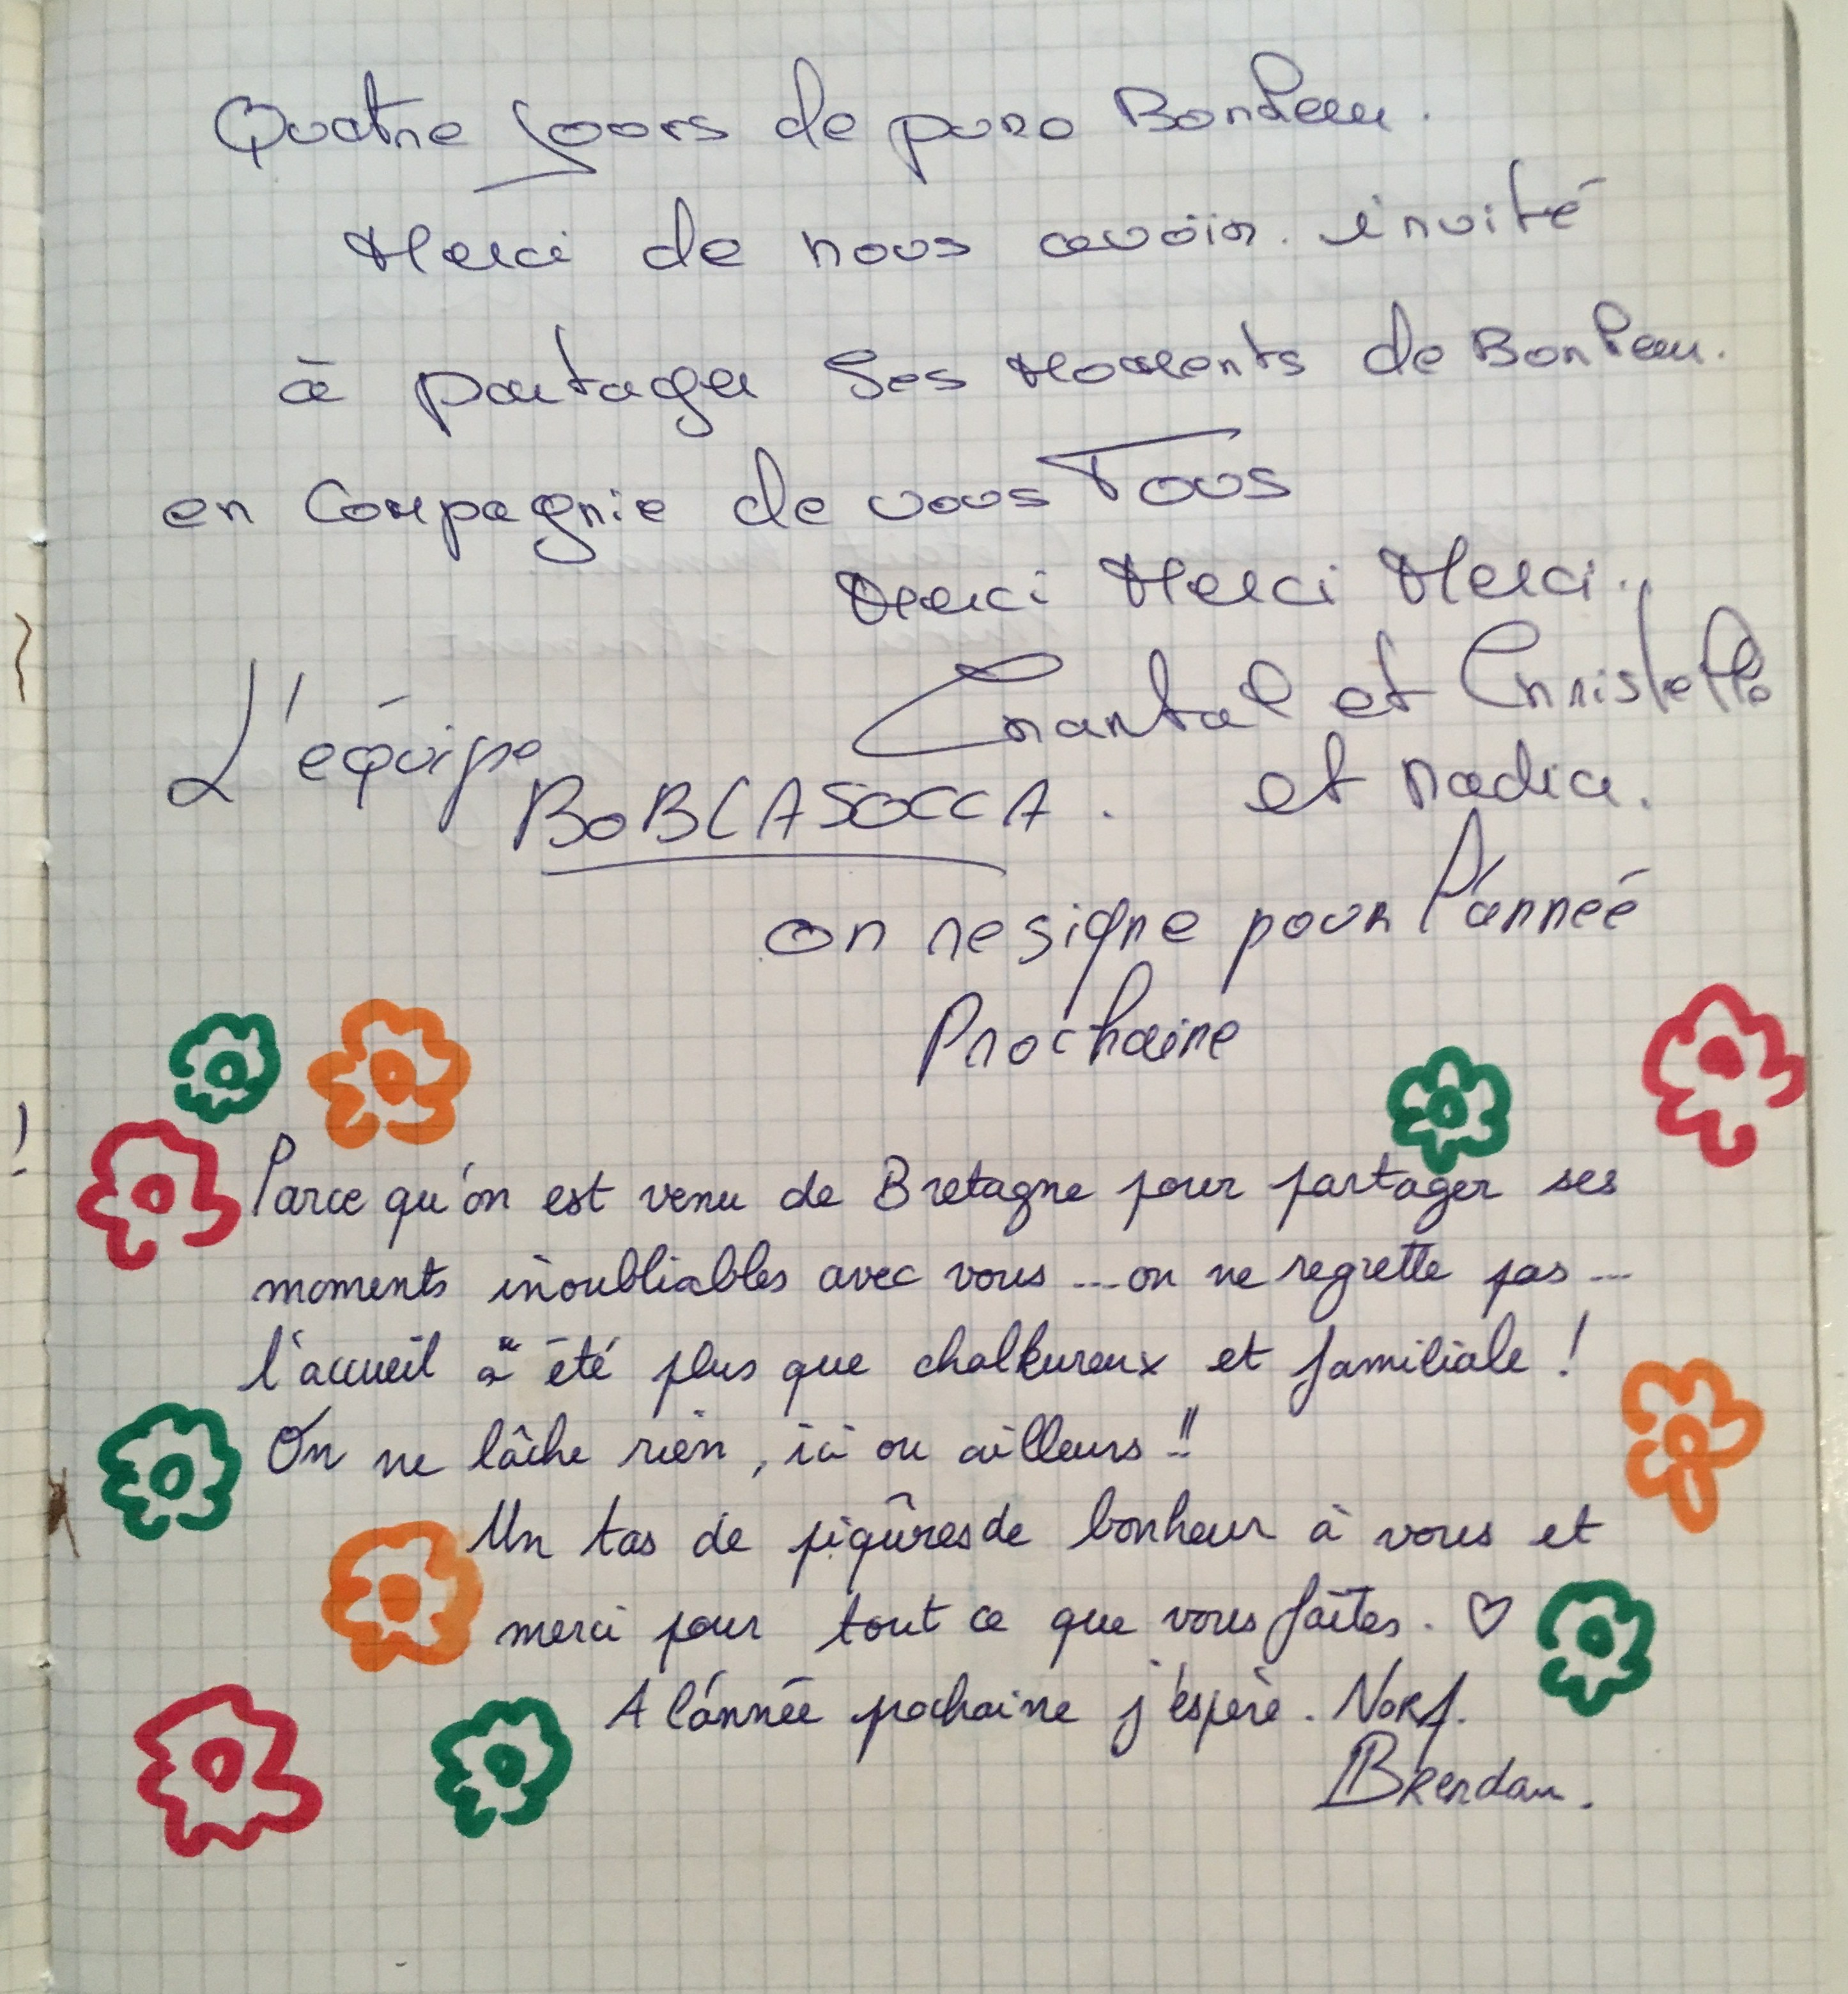 Quatre Jours de pure Bonheur.
Merci de nous avoir invité
à partager Ses Moments de Bonheur.
en Compagnie de vous Tous
Merci Merci Merci..
Chantal et Christelle
L'équipe
BOBCASOCCA. et nadia.
on resigne pour l'année
Prochaine
Parce qu'on est venu de Bretagne pour partager ses
moments inoubliables avec vous ... on ne regrette pas ...
l'accueil a été plus que chalkureux et familiale !
On ne lâche rien, ici ou ailleurs !!
Un tas de piqûres de bonheur à vous et
merci pour tout ce que vous faîtes. ♡
A l'année pochaine j'espère.
Brendan.